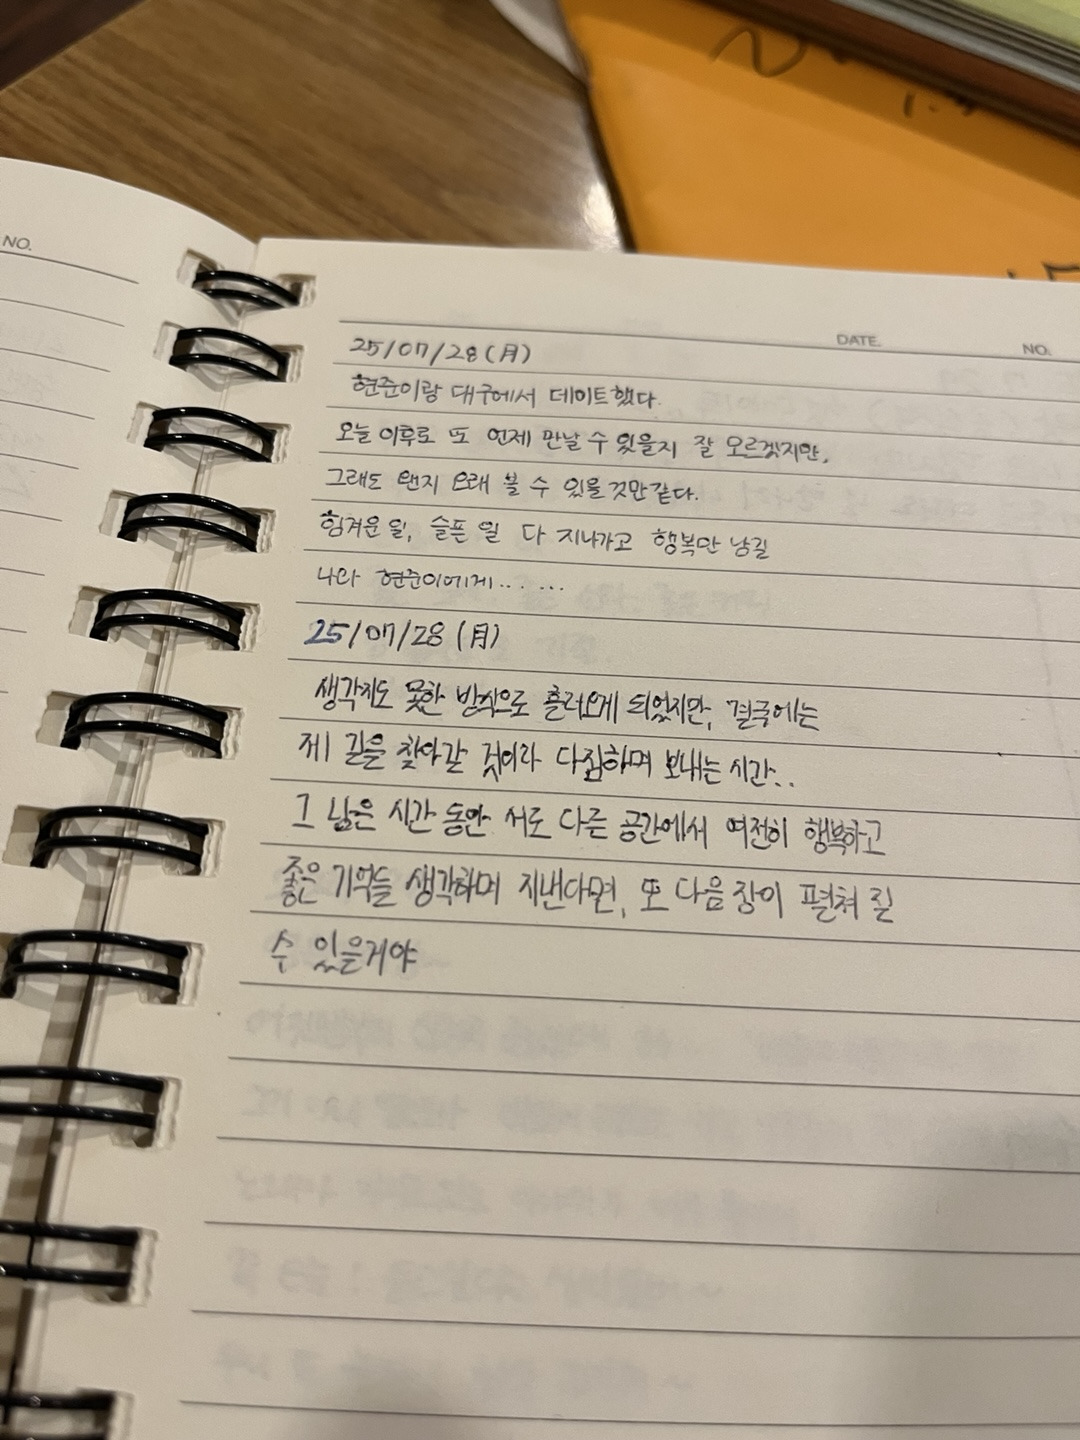 NO.
DATE.
NO.
25/07/28(月)
현준이랑 대구에서 데이트했다.
오늘 이후로 또 언제 만날 수 있을지 잘 모르겠지만,
그래도 왠지 오래 볼 수 있을 것만 같다.
힘겨운 일, 슬픈 일 다 지나가고 행복만 남길
나와 현준이에게......
25/07/28(月)
생각지도 못한 방식으로 흘러오게 되었지만, 결국에는
제 길을 찾아갈 것이라 다짐하며 보내는 시간..
그 남은 시간 동안 서로 다른 공간에서 여전히 행복하고
좋은 기억들 생각하며 지낸다면, 또 다음 장이 펼쳐 질
수 있을거야